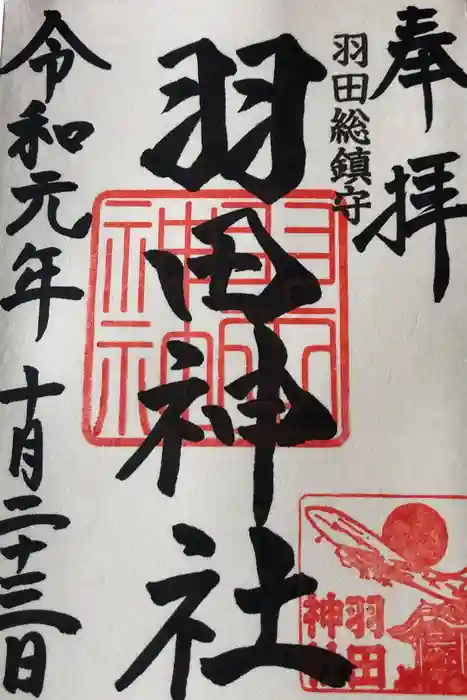 奉拝
羽田総鎮守
羽田神社
令和元年 十月二十三日
羽田
神社